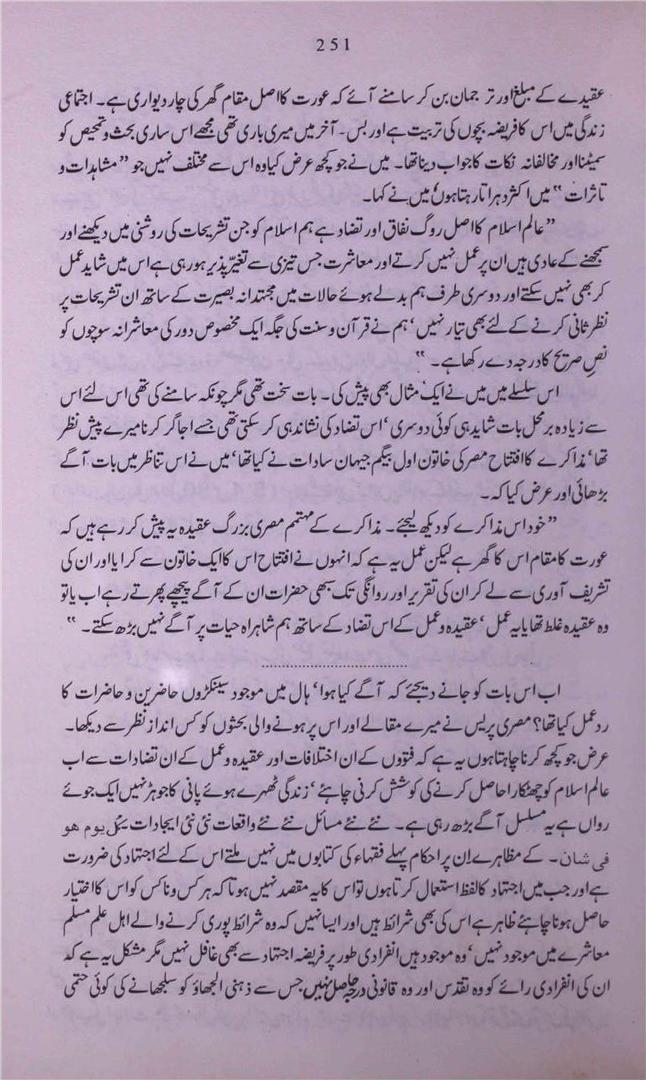 251
عقیدے کے مبلغ اور ترجمان بن کر سامنے آئے کہ عورت کا اصل مقام گھر کی چار دیواری ہے۔ اجتماعی
زندگی میں اس کا فریضہ بچوں کی تربیت ہے اور بس۔ آخر میں میری باری تھی مجھے اس ساری بحث و تمحیص کو
سمیٹنا اور مخالفانہ نکات کا جواب دینا تھا۔ میں نے جو کچھ عرض کیا وہ اس سے مختلف نہیں جو ”مشاہدات و
تاثرات“ میں اکثر دہراتا رہتا ہوں‘ میں نے کہا۔
”عالم اسلام کا اصل روگ نفاق اور تضاد ہے ہم اسلام کو جن تشریحات کی روشنی میں دیکھنے اور
سمجھنے کے عادی ہیں ان پر عمل نہیں کرتے اور معاشرت جس تیزی سے تغیّر پذیر ہو رہی ہے اس میں شاید عمل
کر بھی نہیں سکتے اور دوسری طرف ہم بدلے ہوئے حالات میں مجتہدانہ بصیرت کے ساتھ ان تشریحات پر
نظر ثانی کرنے کے لئے بھی تیار نہیں‘ ہم نے قرآن و سنت کی جگہ ایک مخصوص دور کی معاشرانہ سوچوں کو
نصِ صریح کا درجہ دے رکھا ہے۔“
اس سلسلے میں میں نے ایک مثال بھی پیش کی۔ بات سخت تھی مگر چونکہ سامنے کی تھی اس لئے اس
سے زیادہ بر محل بات شاید ہی کوئی دوسری‘ اس تضاد کی نشاندہی کر سکتی تھی جسے اجاگر کرنا میرے پیش نظر
تھا‘ مذاکرے کا افتتاح مصر کی خاتون اول بیگم جیہان سادات نے کیا تھا‘ میں نے اس تناظر میں بات آگے
بڑھائی اور عرض کیا کہ۔
”خود اس مذاکرے کو دیکھ لیجئے۔ مذاکرے کے مہتمم مصری بزرگ عقیدہ یہ پیش کر رہے ہیں کہ
عورت کا مقام اس کا گھر ہے لیکن عمل یہ ہے کہ انہوں نے افتتاح اس کا ایک خاتون سے کرایا اور ان کی
تشریف آوری سے لے کر ان کی تقریر اور روانگی تک بھی حضرات ان کے آگے پیچھے پھرتے رہے اب یا تو
وہ عقیدہ غلط تھا یا یہ عمل‘ عقیدہ و عمل کے اس تضاد کے ساتھ ہم شاہراہ حیات پر آگے نہیں بڑھ سکتے۔“
اب اس بات کو جانے دیجئے کہ آگے کیا ہوا‘ ہال میں موجود سینکڑوں حاضرین و حاضرات کا
رد عمل کیا تھا؟ مصری پریس نے میرے مقالے اور اس پر ہونے والی بحثوں کو کس انداز نظر سے دیکھا۔
عرض جو کچھ کرنا چاہتا ہوں یہ ہے کہ فتووں کے ان اختلافات اور عقیدہ و عمل کے ان تضادات سے اب
عالم اسلام کو چھٹکارا حاصل کرنے کی کوشش کرنی چاہئے‘ زندگی ٹھہرے ہوئے پانی کا جوہڑ نہیں ایک جوئے
رواں ہے یہ مسلسل آگے بڑھ رہی ہے۔ نئے نئے مسائل نئے نئے واقعات نئی نئی ایجادات کل یوم ھو
فی شان۔ کے مظاہرے ان پر احکام پہلے فقہاء کی کتابوں میں نہیں ملتے اس کے لئے اجتہاد کی ضرورت
ہے اور جب میں اجتہاد کا لفظ استعمال کرتا ہوں تو اس کا یہ مقصد نہیں ہوتا کہ ہر کس و ناکس کو اس کا اختیار
حاصل ہونا چاہئے ظاہر ہے اس کی بھی شرائط ہیں اور ایسا نہیں کہ وہ شرائط پوری کرنے والے اہل علم مسلم
معاشرے میں موجود نہیں‘ وہ موجود ہیں انفرادی طور پر فریضہ اجتہاد سے بھی غافل نہیں مگر مشکل یہ ہے کہ
ان کی انفرادی رائے کو وہ تقدس اور وہ قانونی درجہ حاصل نہیں جس سے ذہنی الجھاؤ کو سلجھانے کی کوئی حتمی